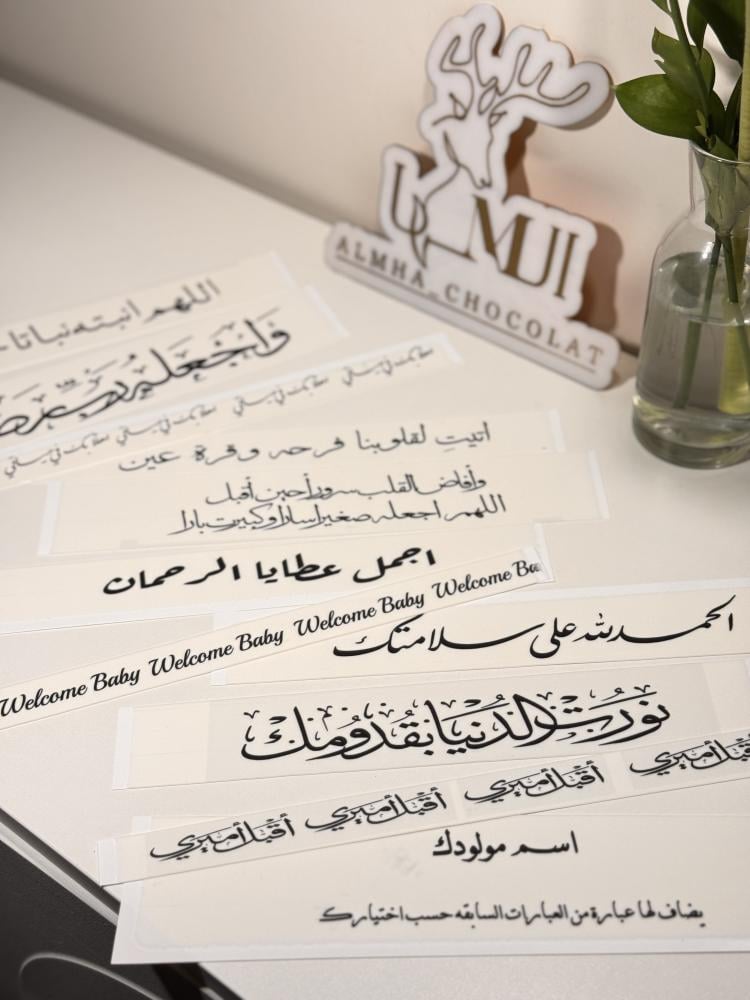 المها
ALMHA_CHOCOLAT
اللهم انبته نباتا
واجعله
أتيتِ لقلوبنا فرحه وقرة عين
وأفاض القلب سرورا حين أقبل
اللهم اجعله صغيرا سارا وكبيرت بارا
اجمل عطايا الرحمان
Welcome Baby Welcome Baby Welcome Baby Welcome Ba
الحمدلله على سلامتك
نورت الدنيا بقدومك
أقبل أميري أقبل أميري أقبل أميري أقبل أميري
اسم مولودك
يضاف لها عبارة من العبارات السابقه حسب اختيارك